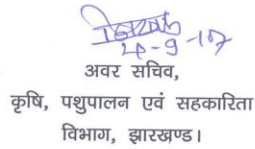 20-9-17
अवर सचिव,
कृषि, पशुपालन एवं सहकारिता
विभाग, झारखण्ड।